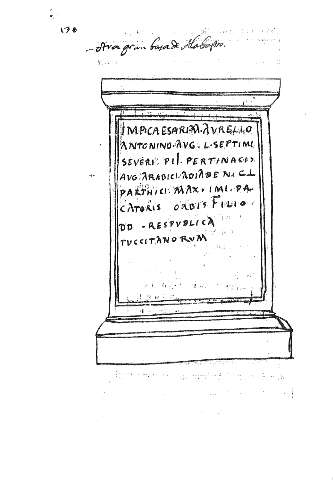 138
otra gran basa de Alabastro.
IMP.CAESARI.M.AVRELLO
ANTONINO.AVG.L.SEPTIMI
SEVERI. PII. PERTINACIS
AVG.ARABICI.ADIABENICI
PARTHICI.MAX.IMI.PA
CATORIS ORBIS FILIO
DD.RESPVBLICA
TVCCITANORVM